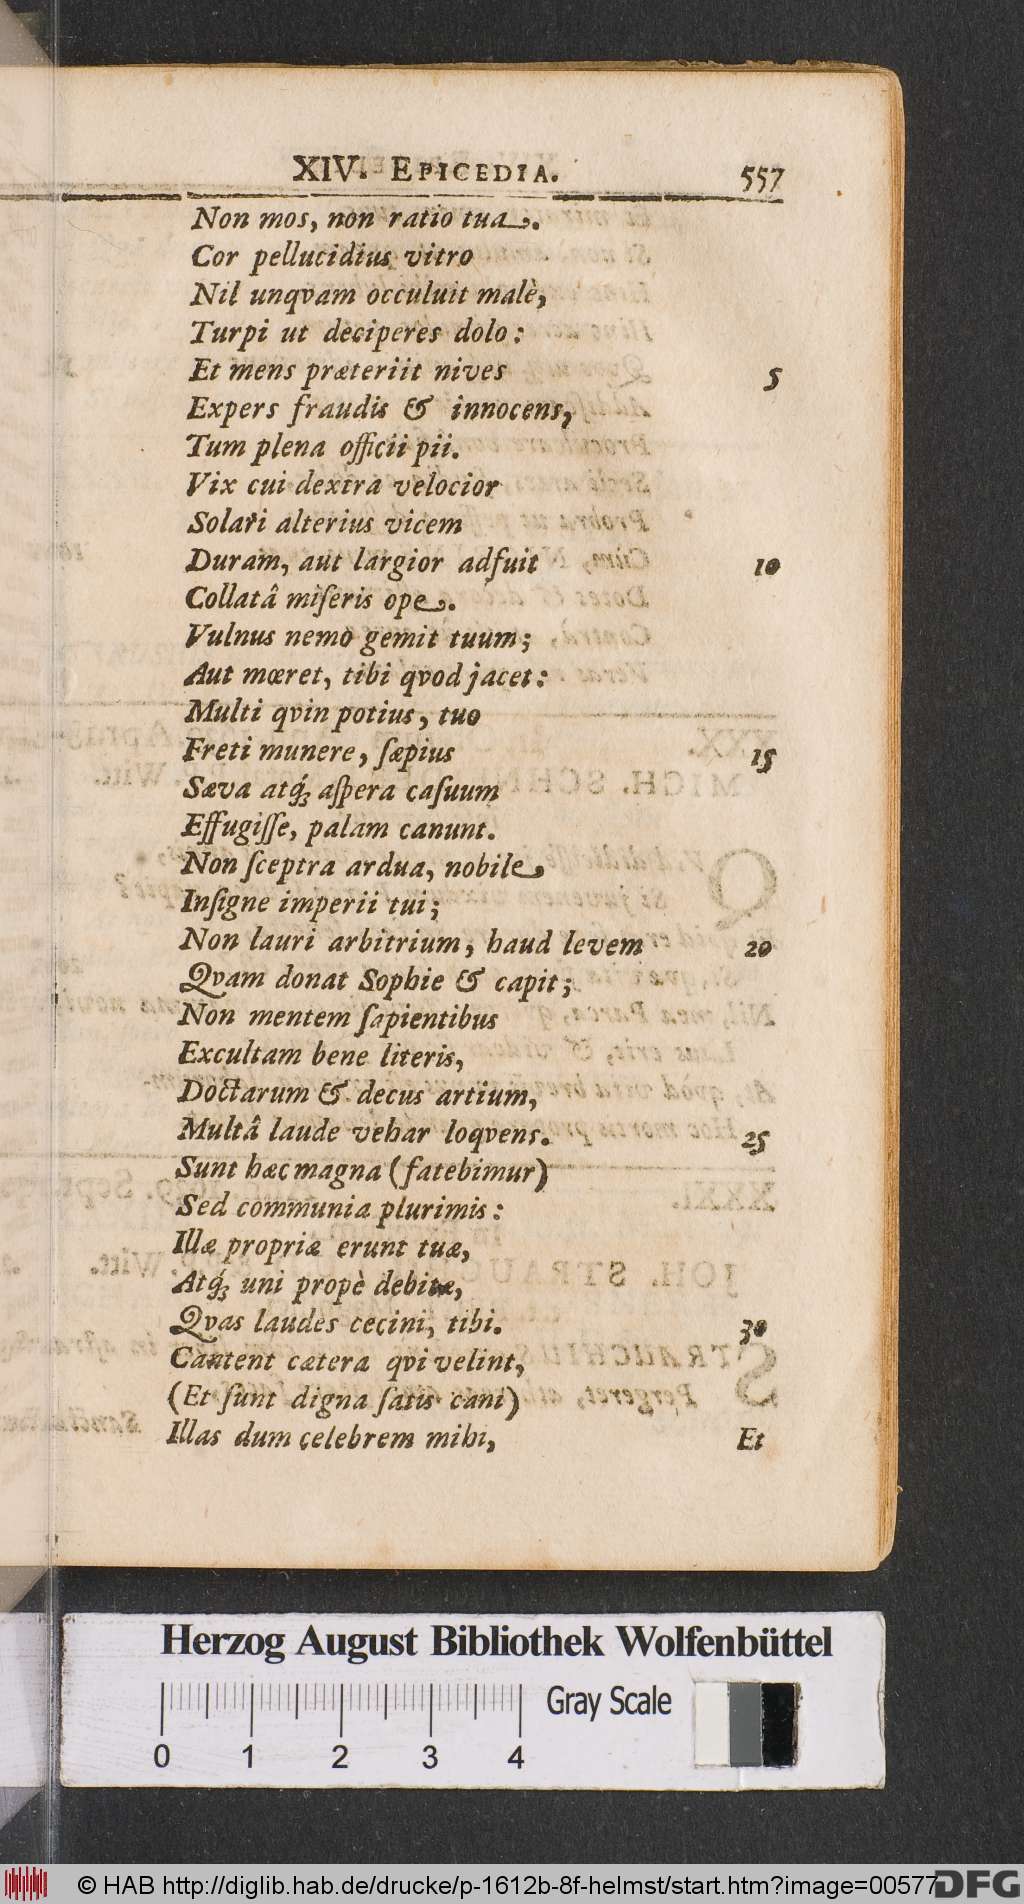 XIV. EPICEDIA. 557
Non mos, non ratio tua.
Cor pellucidius vitro
Nil unqvam occuluit malè,
Turpi ut deciperes dolo:
Et mens præteriit nives 5
Expers fraudis & innocens,
Tum plena officii pii.
Vix cui dextra velocior
Solari alterius vicem
Duram, aut largior adfuit 10
Collatâ miſeris ope.
Vulnus nemo gemit tuum;
Aut mœret, tibi qvod jacet:
Multi qvin potius, tuo
Freti munere, ſæpius 15
Sæva atq́; aſpera caſuum
Effugiſſe, palam canunt.
Non ſceptra ardua, nobile
Inſigne imperii tui;
Non lauri arbitrium, haud levem 20
Qvam donat Sophie & capit;
Non mentem ſapientibus
Excultam bene literis,
Doctarum & decus artium,
Multâ laude vehar loqvens. 25
Sunt hæc magna (fatebimur)
Sed communia plurimis:
Illæ propriæ erunt tuæ,
Atq́; uni propè debitæ,
Qvas laudes cecini, tibi. 30
Cantent cætera qvi velint,
(Et ſunt digna ſatis cani)
Illas dum celebrem mihi,
Et
Herzog August Bibliothek Wolfenbüttel
Gray Scale
0 1 2 3 4
© HAB http://diglib.hab.de/drucke/p-1612b-8f-helmst/start.htm?image=00577
DFG